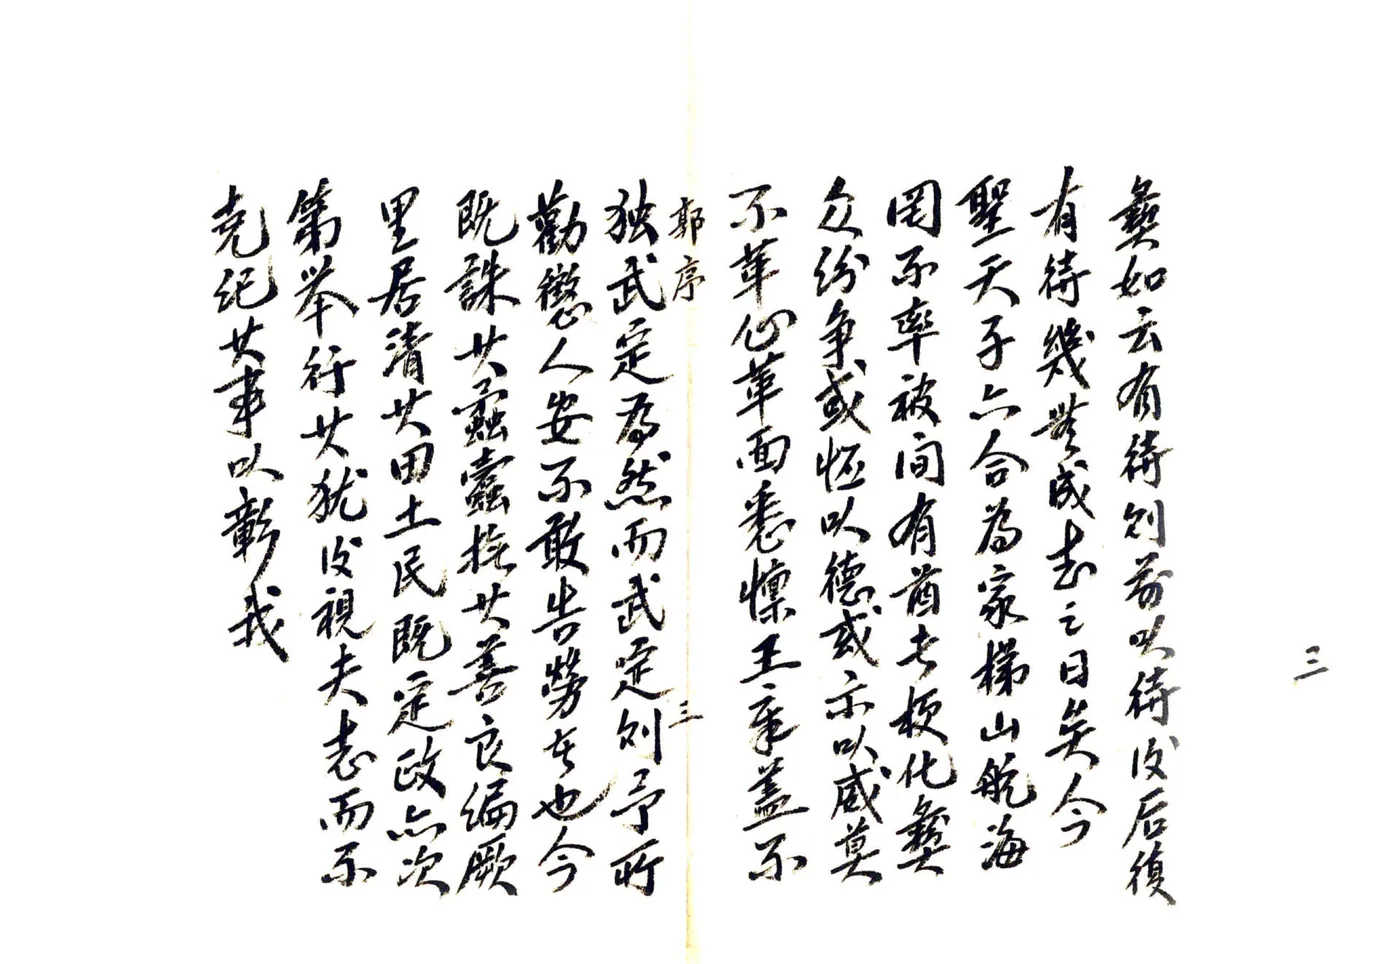 彜如云有待则前以待後后復
有待幾無成志之日矣今
聖天子六合為家梯山航海
罔不率被间有酋长梗化彜
众纷争或怀以德或示以威莫
不革心革面悉懔王章盖不
郭序
三
独武定為然而武定则予所
勸懲人安不敢告勞者也今
既誅其蠹蠹撫其善良编厥
里居清其田土民既定政亦次
第举行其犹後視夫志而不
克纪其事以彰我
三